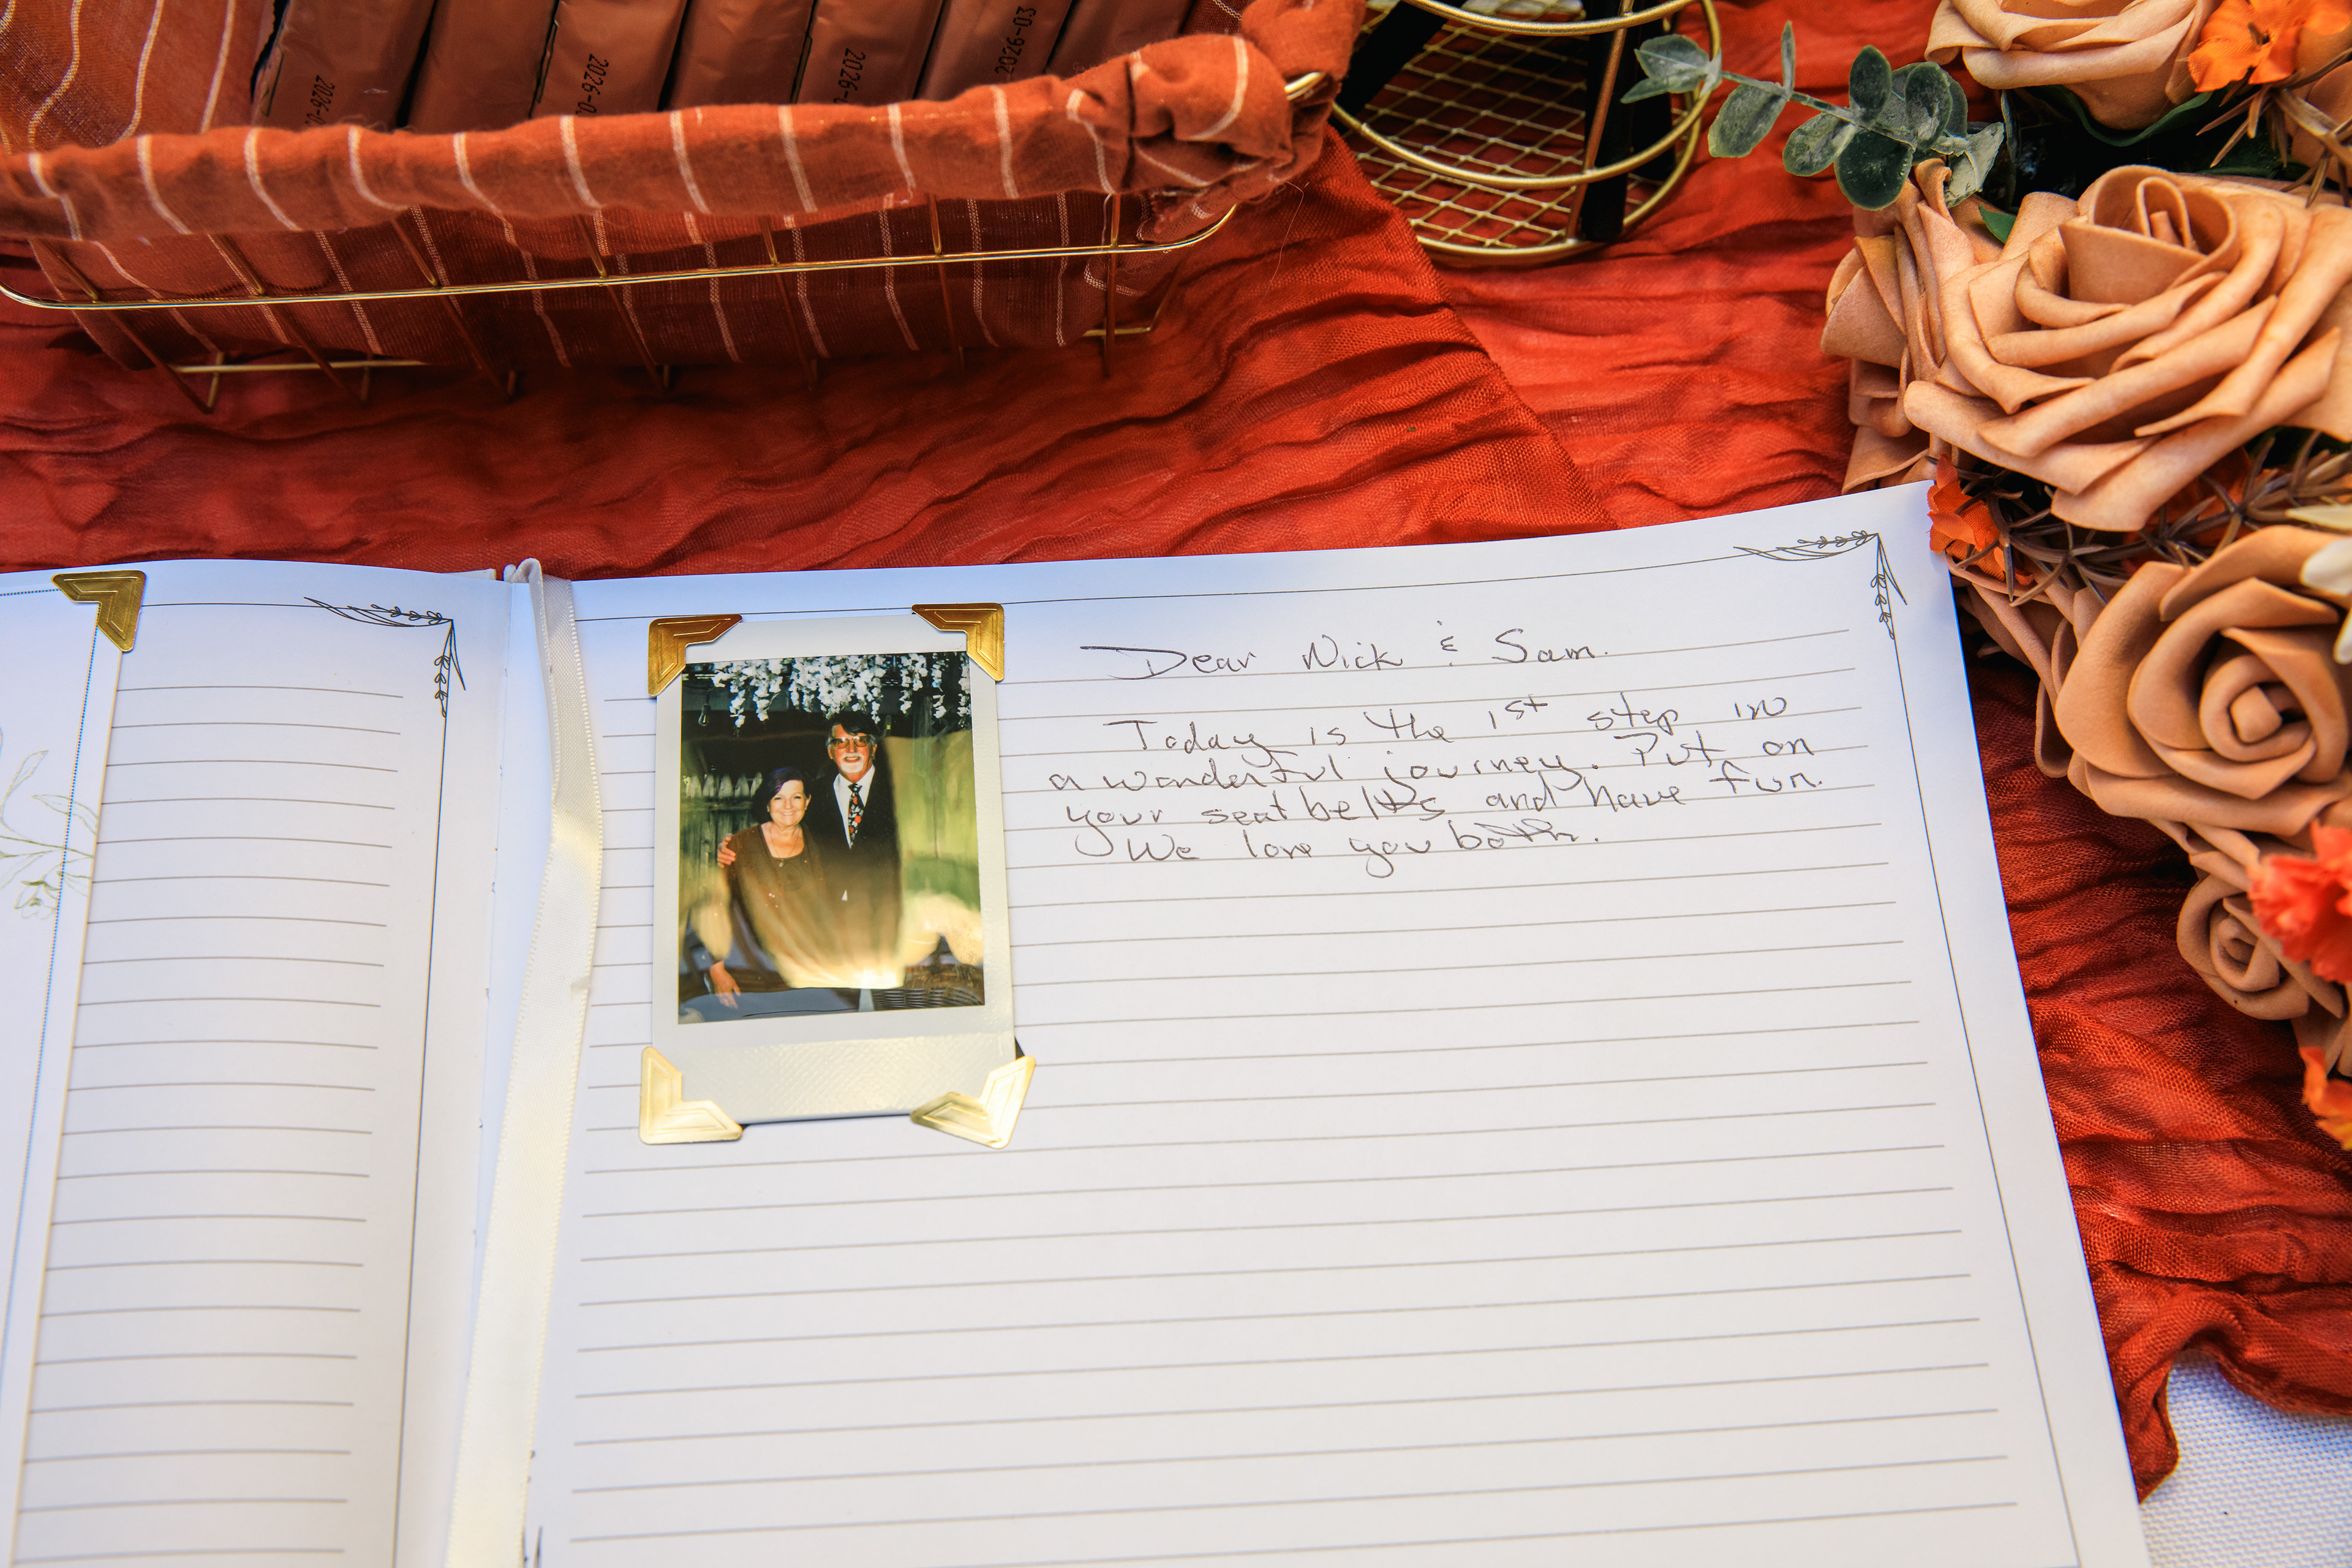 2026-0
2026-0
2026-0
2026-03
Dear Nick & Sam.
Today is the 1st step in
a wonderful journey. Put on
your seat belts and have fun.
We love you both.